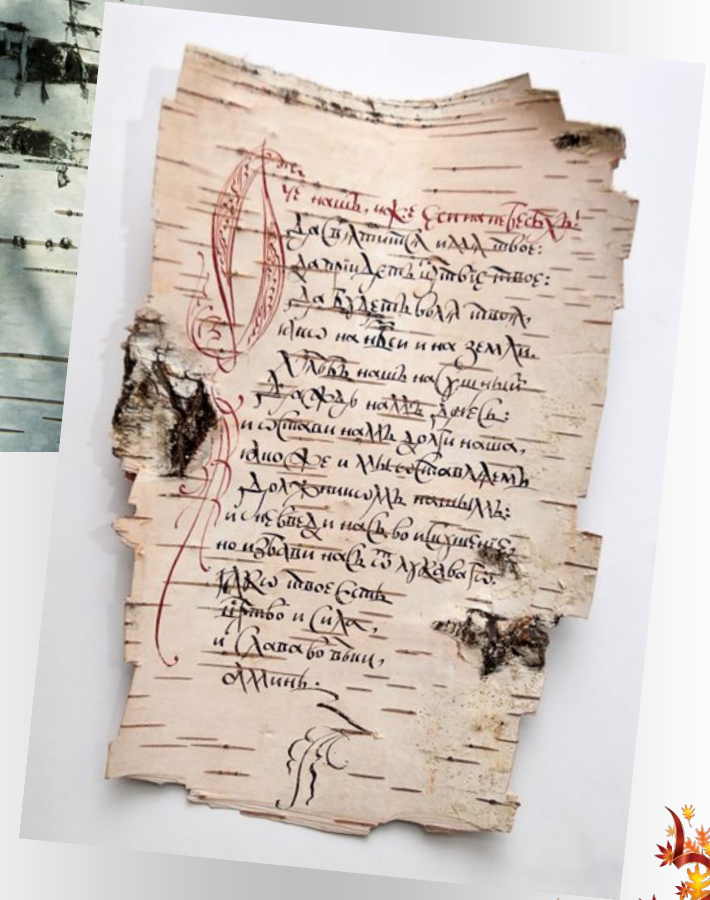 Отче нашъ, иже еси на небесѣхъ!
Да свѧтитсѧ имѧ твое:
да прїидетъ црⷭтвїе твое:
да бꙋдетъ волѧ твоѧ,
ꙗкѡ на нб҃си и на земли.
Хлѣбъ нашъ насꙋщный
даждь намъ днесь:
и ѡстави намъ долги наша,
ꙗкоже и мы ѡставлѧемъ
должникѡмъ нашымъ:
и не введи насъ во искꙋшенїе,
но избави насъ ѿ лꙋкавагѡ.
Ꙗкѡ твое есть
црⷭтво и сила,
и слава во вѣки,
аминь.